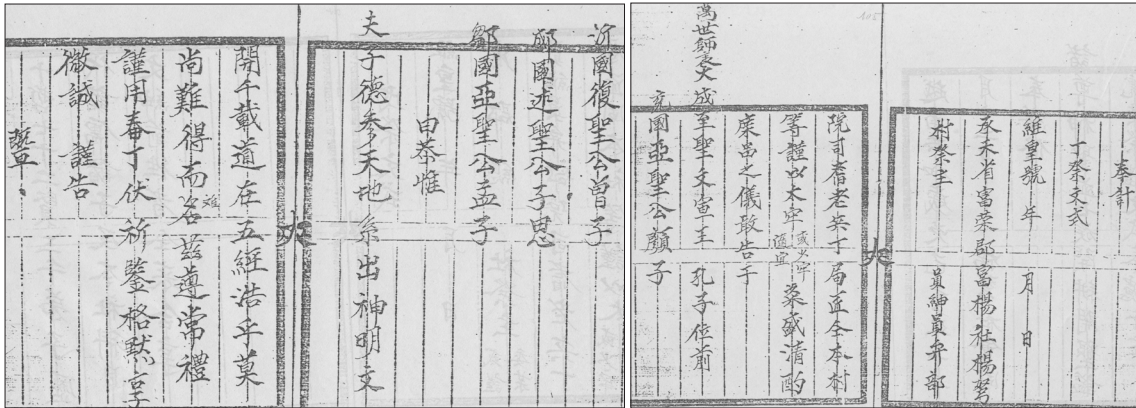 奉計
丁祭文式
維皇號 年 月 日
承天省富榮郡富楊社楊弩
村祭主 員紳員弁部
院司耆老英丁局匠仝本村
等謹以太牢 或少牢隨宜 粢盛清酌
庶品之儀敢告于
萬世師表大成至聖文宣王 孔子位前
兗國亞聖公顏子
沂國復聖公曾子
國述聖公子思
鄒國亞聖公孟子
曰恭惟
夫子德參天地系出神明文
開千載道在五經浩乎莫
尚難得而名難茲遵常禮
謹用春丁伏祈鑒格默享
微誠 謹告